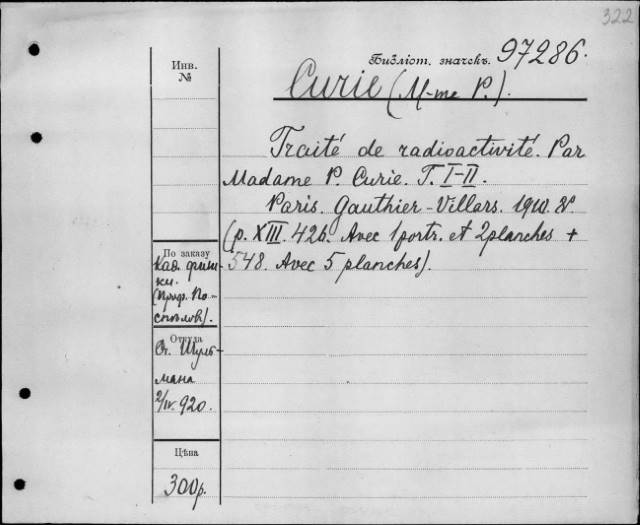 322
Библіот. значекъ. 97286.
Инв.
№
Curie (M-me P.).
Traité de radioactivité. Par
Madame P. Curie. T. I-II.
Paris. Gauthier-Villars. 1910. 8°.
(p. XIII. 426. Avec 1 portr. et 2 planches +
548. Avec 5 planches).
По заказу
Каб. физи-
ки.
(Проф. По-
спѣлов).
Откуда
Сч. Шуль-
мана
2/IV. 920.
Цѣна
300 р.